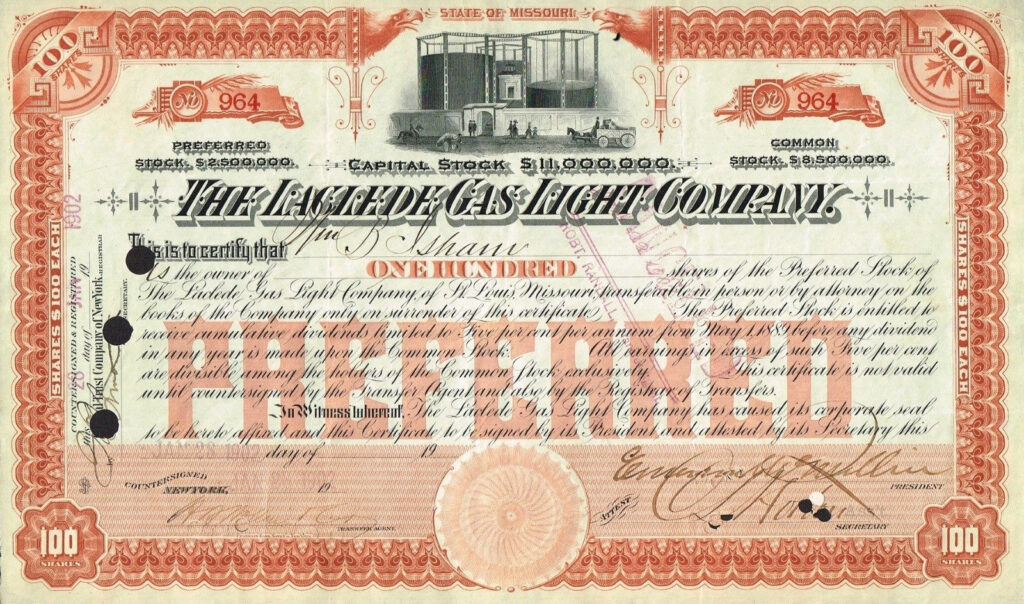 STATE OF MISSOURI.
100
SHARES
100
SHARES
No 964
No 964
PREFERRED
STOCK, $2,500,000.
CAPITAL STOCK $11,000,000.
COMMON
STOCK, $8,500,000.
THE LACLEDE GAS LIGHT COMPANY.
This is to certify that Wm B Isham
is the owner of ONE HUNDRED shares of the Preferred Stock of
The Laclede Gas Light Company, of St. Louis, Missouri, transferable in person or by attorney on the
books of the Company only on surrender of this certificate. The Preferred Stock is entitled to
receive cumulative dividends limited to Five per cent per annum from May 1, 1889 before any dividend
in any year is made upon the Common Stock. All earnings in excess of such Five per cent
are divisible among the holders of the Common stock exclusively. This certificate is not valid
until countersigned by the Transfer Agent and also by the Registrar of Transfers.
PREFERRED
In Witness whereof, The Laclede Gas Light Company has caused its corporate seal
to be hereto affixed and this Certificate to be signed by its President and attested by its Secretary this
day of 19
COUNTERSIGNED
NEW YORK, 19
TRANSFER AGENT.
PRESIDENT
ATTEST
SECRETARY
SHARES $100 EACH
SHARES $100 EACH
COUNTERSIGNED & REGISTERED
1902
day of 19
Trust Company of New York, REGISTRAR
SECRETARY.
100
SHARES
100
SHARES